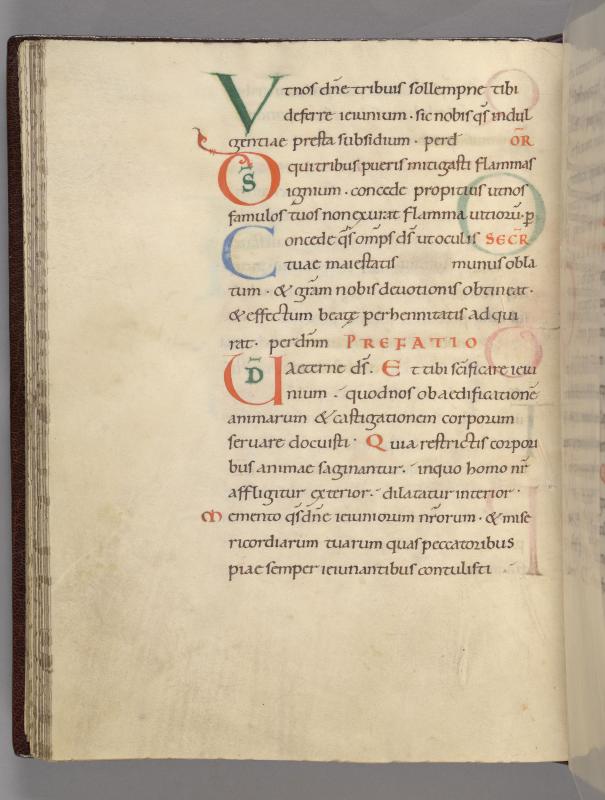 Vt nos dn̄e tribuis sollempne tibi
deferre ieiunium · sic nobis qs̄ indul
gentiae presta subsidium · perd̄ OR̄
DS̄ qui tribus pueris mitigasti flammas
ignium · concede propitius ut nos
famulos tuos non exurat flamma uitioꝝ · ꝑ
Concede qs̄ omp̄s ds̄ ut oculis SECR̄
tuae maiestatis munus obla
tum · & gr̄am nobis deuotionis obtineat ·
& effectum beatę perhennitatis adqui
rat · per dn̄m PREFATIO
VD̄ Aeterne ds̄. Et tibi sc̄ificare ieiu
nium · quod nos ob aedificationē
animarum & castigationem corporum
seruare docuisti · Quia restrictis corpori
bus animae saginantur · in quo homo nr̄
affligitur exterior · dilatatur interior ·
Memento qs̄ dn̄e ieiuniorum nr̄orum · & mise
ricordiarum tuarum quas peccatoribus
piae semper ieiunantibus contulisti